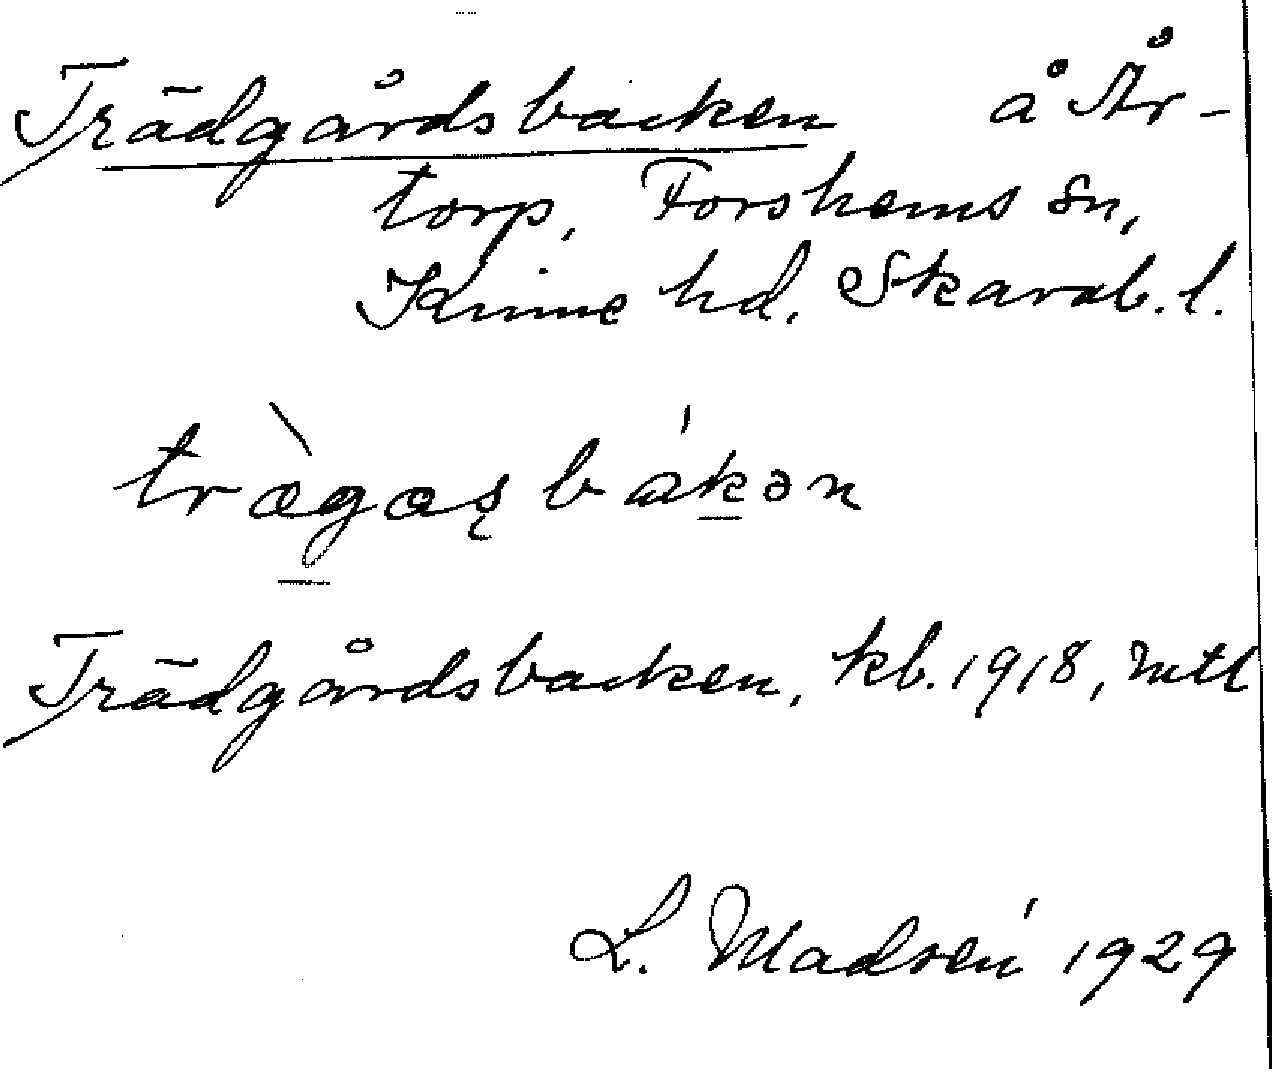 Trädgårdsbacken å År-
torp, Forshems sn,
Kinne hd. Skarab. l.
trægas bakən
Trädgårdsbacken, kb. 1918, mtl
L. Madsén 1929